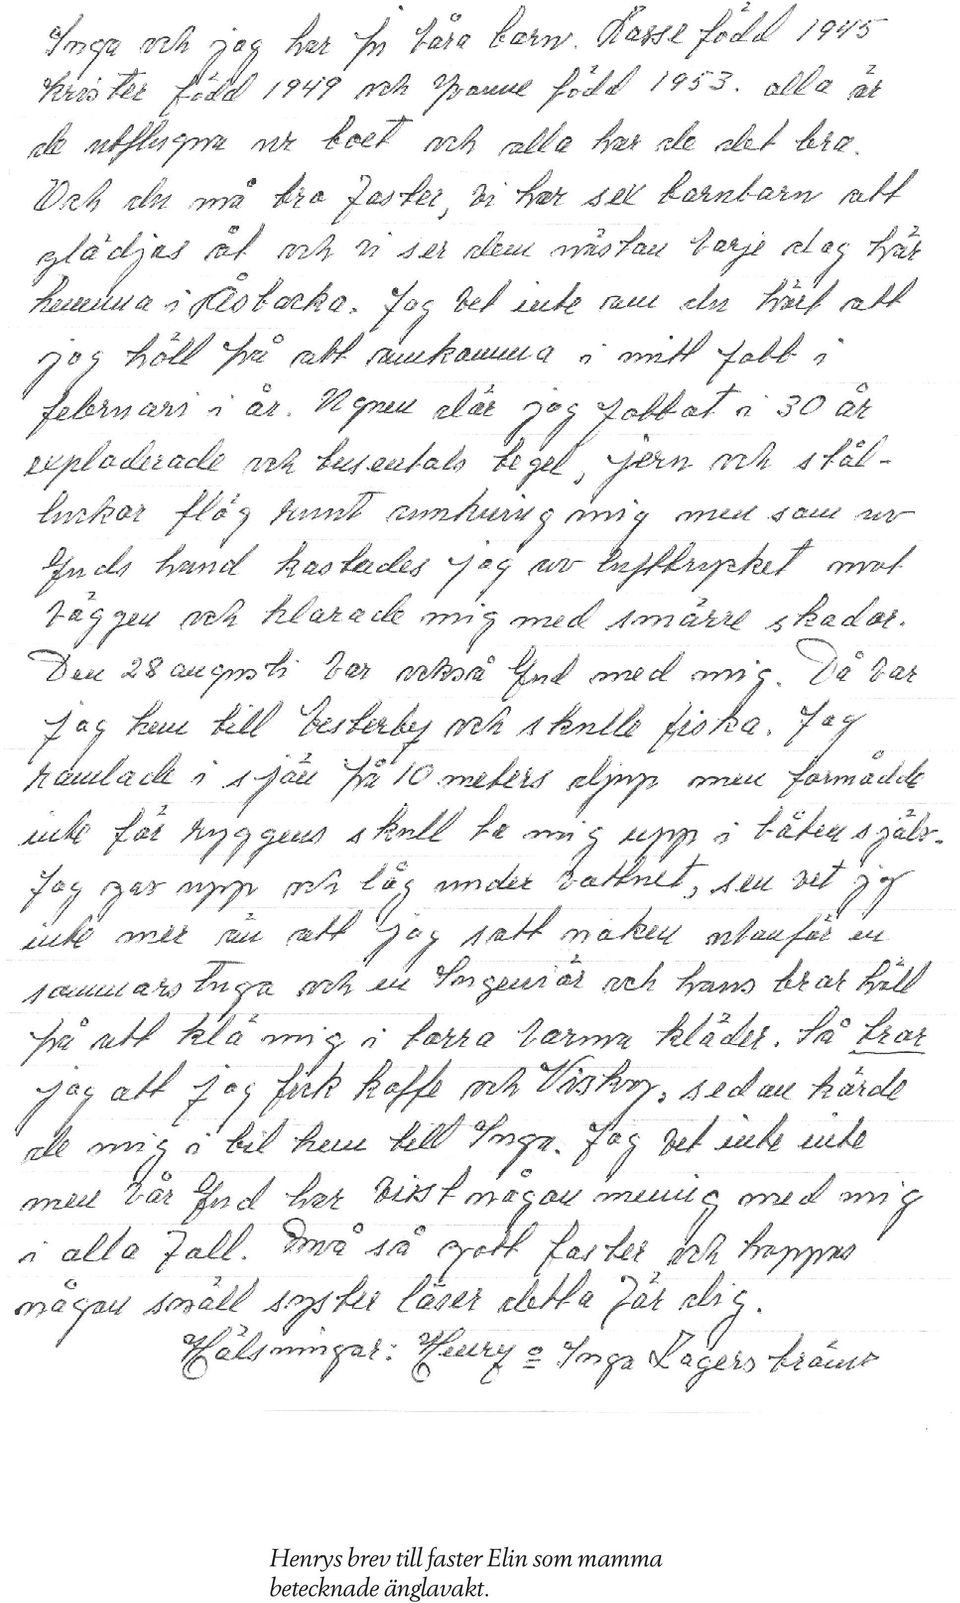 Inga och jag har ju våra barn. Lasse född 1945
Krister född 1949 och Yvonne född 1953. alla är
de utflugna ur boet och alla har de det bra.
Och du må bra Faster, vi har sex barnbarn att
glädjas åt och vi ser dem nästan varje dag här
hemma i Åsbacka. Jag vet inte om du hört att
jag höll på att omkomma i mitt jobb i
februari i år. Ugnen där jag jobbat i 30 år
exploderade och tusentals tegel, jern och stål-
luckor flög runt omkring mig men som av
Guds hand kastades jag av lufttrycket mot
väggen och klarade mig med smärre skador.
Den 28 augusti var också Gud med mig. Då var
jag hem till Vesterby och skulle fiska. Jag
ramlade i sjön på 10 meters djup men förmådde
inte för ryggens skull ta mig upp i båten själv.
Jag gav upp och låg under vattnet, sen vet jag
inte mer än att jag satt naken utanför en
sommarstuga och en Ingeniör och hans bror höll
på att klä mig i torra varma kläder. Så tror
jag att jag fick kaffe och Visky, sedan körde
de mig i bil hem till Inga. Jag vet inte inte
men vår Gud har visst någon mening med mig
i alla fall. Må så gott faster och hoppas
någon snäll syster läser detta för dig.
Hälsningar: Henry o Inga Lagerström
Henrys brev till faster Elin som mamma
betecknade änglavakt.